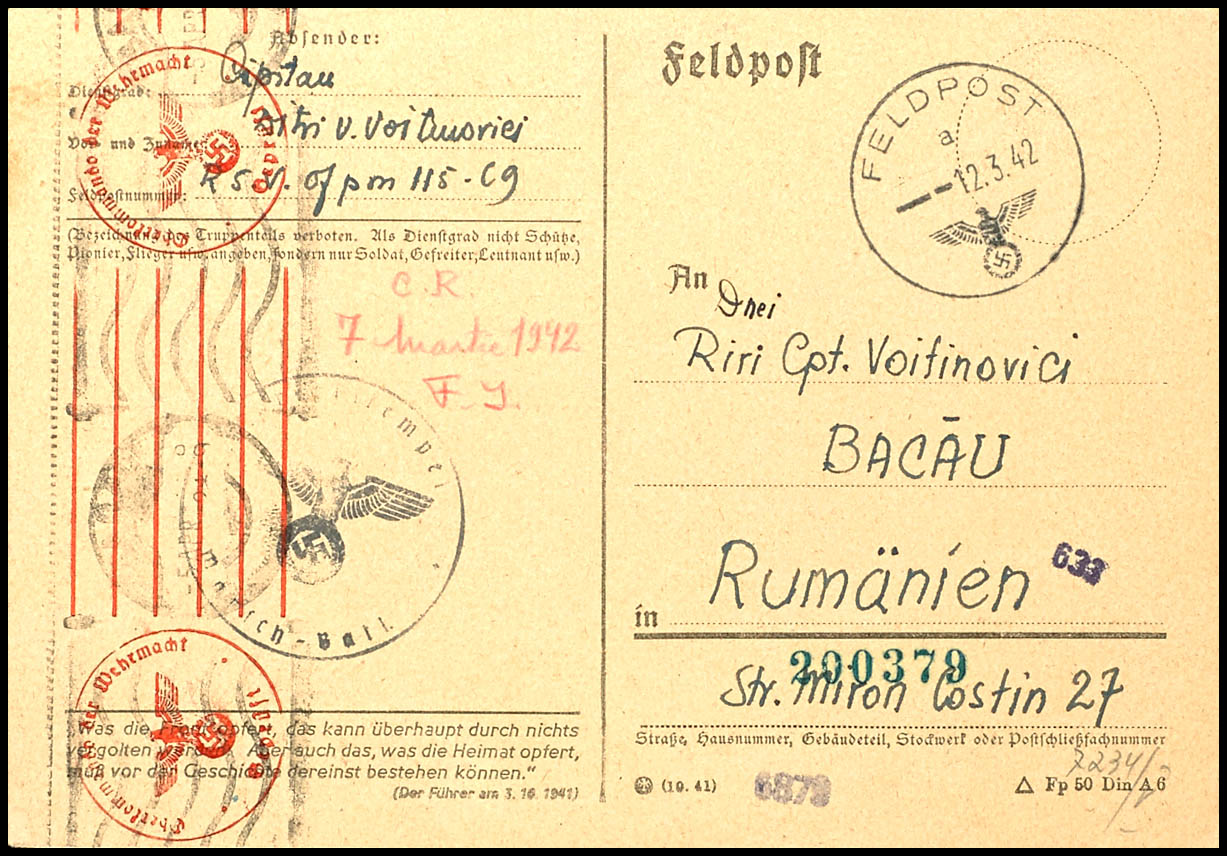 Absender:
Dienstgrad:
Vor- und Zuname: v. Voitinovici
Feldpostnummer: of pos 115-C9
(Bezeichnung des Truppenteils verboten. Als Dienstgrad nicht Schütze,
Pionier, Flieger usw. angeben, sondern nur Soldat, Gefreiter, Leutnant usw.)
Oberkommando der Wehrmacht
Geprüft
C.R.
7 Martie 1942
F.J.
Oberkommando der Wehrmacht
Geprüft
„Was die Front opfert, das kann überhaupt durch nichts
vergolten werden. Aber auch das, was die Heimat opfert,
muß vor der Geschichte dereinst bestehen können.“
(Der Führer am 3. 10. 1941)
Feldpost
FELDPOST
a
12.3.42
An Dnei
Riri Cpt. Voitinovici
BACĂU
Rumänien
633
in
200379
Str. Miron Costin 27
Straße, Hausnummer, Gebäudeteil, Stockwerk oder Postschließfachnummer
(10. 41) 6879 Fp 50 Din A 6